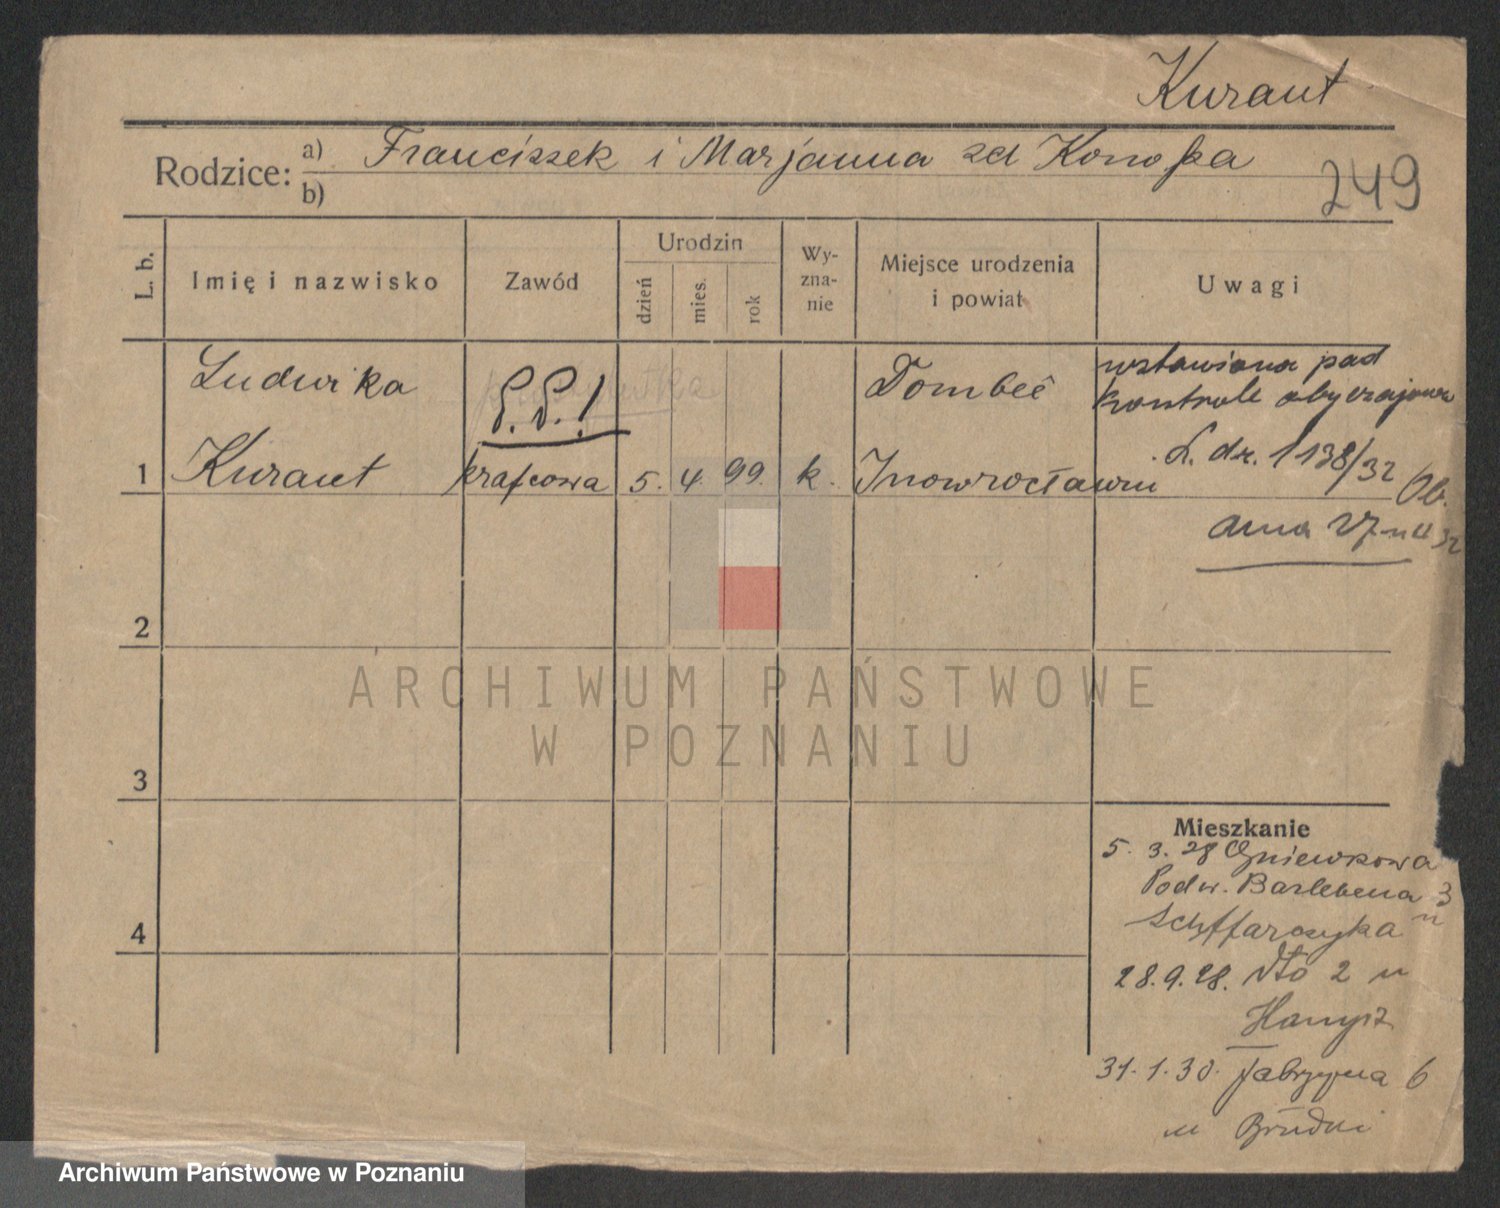 Kurant
Rodzice: a) Franciszek i Marjanna zd Konofka
b)
249
L. b.
Imię i nazwisko
Zawód
Urodzin
dzień
mies.
rok
Wy-
zna-
nie
Miejsce urodzenia
i powiat
Uwagi
1
Ludwika
Kurant
krafcowa
5. 4. 99. k.
Inowrocławiu
wstawiona pod
kontrole obyczajowa
L. dz. 1138/32
2
3
4
Mieszkanie
5. 3. 28 Gniewkowa
Podw. Barlebena 3
u
Scheffarczyka
28.9.28. dto 2 u
31. 1. 30. Fabryczna 6
u
ARCHIWUM PAŃSTWOWE
W POZNANIU
Archiwum Państwowe w Poznaniu